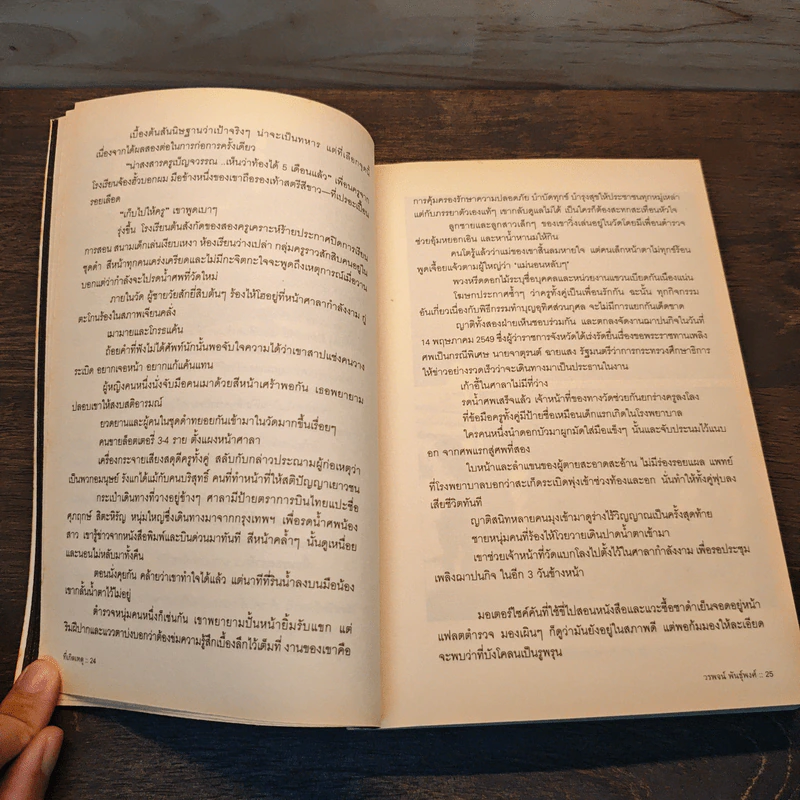 เบื้องต้นสันนิษฐานว่าเป้าจริงๆ น่าจะเป็นทหาร แต่ที่เลือกชุดนี้
เนื่องจากได้ผลสองต่อในการก่อการครั้งเดียว
"น่าสงสารครูเบ็ญจวรรณ ..เห็นว่าท้องได้ 5 เดือนแล้ว" เพื่อนครูจาก
โรงเรียนจ้องฮั้วบอกผม มือข้างหนึ่งของเขาถือรองเท้าสตรีสีขาว—ที่เปรอะเปื้อน
รอยเลือด
"เก็บไปให้ครู" เขาพูดเบาๆ
รุ่งขึ้น โรงเรียนต้นสังกัดของสองครูเคราะห์ร้ายประกาศปิดการเรียน
การสอน สนามเด็กเล่นเงียบเหงา ห้องเรียนว่างเปล่า กลุ่มครูราวสักสิบคนอยู่ใน
ชุดดำ สีหน้าทุกคนเคร่งเครียดและไม่มีกะจิตกะใจจะพูดถึงเหตุการณ์เมื่อวาน
บอกแต่ว่ากำลังจะไปรดน้ำศพที่วัดใหม่
ภายในวัด ผู้ชายวัยสักยี่สิบต้นๆ ร้องไห้โฮอยู่ที่หน้าศาลากำลังงาม ดู
ตะโกนร้องในสภาพเจียนคลั่ง
เมามายและโกรธแค้น
ถ้อยคำที่ฟังไม่ได้ศัพท์นักนั้นพอจับใจความได้ว่าเขาสาปแช่งคนวาง
ระเบิด อยากเจอหน้า อยากแก้แค้นแทน
ผู้หญิงคนหนึ่งนั่งจับมือคนเมาด้วยสีหน้าเศร้าพอกัน เธอพยายาม
ปลอบเขาให้สงบสติอารมณ์
ยวดยานและผู้คนในชุดดำทยอยกันเข้ามาในวัดมากขึ้นเรื่อยๆ
คนขายล็อตเตอรี่ 3-4 ราย ตั้งแผงหน้าศาลา
เครื่องกระจายเสียงสดุดีครูทั้งคู่ สลับกับกล่าวประณามผู้ก่อเหตุว่า
เป็นพวกอมนุษย์ รังแกได้แม้กับคนบริสุทธิ์ คนที่ทำหน้าที่ให้สติปัญญาเยาวชน
กระเป๋าเดินทางที่วางอยู่ข้างๆ ศาลามีป้ายตราการบินไทยแปะชื่อ
ศุภฤกษ์ สิตะหิรัญ หนุ่มใหญ่ซึ่งเดินทางมาจากกรุงเทพฯ เพื่อรดน้ำศพน้อง
สาว เขารู้ข่าวจากหนังสือพิมพ์และบินด่วนมาทันที สีหน้าคล้ำๆ นั้นดูเหนื่อย
และนอนไม่หลับมาทั้งคืน
ตอนนั่งคุยกัน คล้ายว่าเขาทำใจได้แล้ว แต่นาทีที่รินน้ำลงบนมือน้อง
เขากลั้นน้ำตาไว้ไม่อยู่
ตำรวจหนุ่มคนหนึ่งก็เช่นกัน เขาพยายามปั้นหน้ายิ้มรับแขก แต่
ริมฝีปากและแววตาบ่งบอกว่าต้องข่มความรู้สึกเบื้องลึกไว้เต็มที่ งานของเขาคือ
ที่เกิดเหตุ :: 24
การคุ้มครองรักษาความปลอดภัย บำบัดทุกข์ บำรุงสุขให้ประชาชนทุกหมู่เหล่า
แต่กับภรรยาตัวเองแท้ๆ เขากลับดูแลไม่ได้ เป็นใครก็ต้องสะทกสะเทือนหัวใจ
ลูกชายและลูกสาวเล็กๆ ของเขาวิ่งเล่นอยู่ในวัดโดยมีเพื่อนตำรวจ
ช่วยอุ้มหยอกเอิน และหาน้ำหานมให้กิน
คนโตรู้แล้วว่าแม่ของเขาสิ้นลมหายใจ แต่คนเล็กหน้าตาไม่ทุกข์ร้อน
พูดเจื้อยแจ้วตามผู้ใหญ่ว่า "แม่นอนหลับๆ"
พวงหรีดดอกไม้ระบุชื่อบุคคลและหน่วยงานแขวนเบียดกันเนืองแน่น
โฆษกประกาศซ้ำๆ ว่าครูทั้งคู่เป็นเพื่อนรักกัน ฉะนั้น ทุกกิจกรรม
อันเกี่ยวเนื่องกับพิธีกรรมทำบุญอุทิศส่วนกุศล จะไม่มีการแยกกันเด็ดขาด
ญาติทั้งสองฝ่ายเห็นชอบร่วมกัน และตกลงจัดงานฌาปนกิจในวันที่
14 พฤษภาคม 2549 ซึ่งผู้ว่าราชการจังหวัดได้เร่งรัดยื่นเรื่องขอพระราชทานเพลิง
ศพเป็นกรณีพิเศษ นายจาตุรนต์ ฉายแสง รัฐมนตรีว่าการกระทรวงศึกษาธิการ
ให้ข่าวอย่างรวดเร็วว่าจะเดินทางมาเป็นประธานในงาน
เก้าอี้ในศาลาไม่มีที่ว่าง
รดน้ำศพเสร็จแล้ว เจ้าหน้าที่ของทางวัดช่วยกันยกร่างครูลงโลง
ที่ข้อมือครูทั้งคู่มีป้ายชื่อเหมือนเด็กแรกเกิดในโรงพยาบาล
ใครคนหนึ่งนำดอกบัวมาผูกมัดใส่มือแข็งๆ นั้นและจับประนมไว้แนบ
อก จากศพแรกสู่ศพที่สอง
ใบหน้าและลำแขนของผู้ตายสะอาดสะอ้าน ไม่มีร่องรอยแผล แพทย์
ที่โรงพยาบาลบอกว่าสะเก็ดระเบิดพุ่งเข้าช่วงท้องและอก นั่นทำให้ทั้งคู่ฟุบลง
เสียชีวิตทันที
ญาติสนิทหลายคนมุงเข้ามาดูร่างไร้วิญญาณเป็นครั้งสุดท้าย
ชายหนุ่มคนที่ร้องไห้โวยวายเดินปาดน้ำตาเข้ามา
เขาช่วยเจ้าหน้าที่วัดแบกโลงไปตั้งไว้ในศาลากำลังงาม เพื่อรอประชุม
เพลิงฌาปนกิจ ในอีก 3 วันข้างหน้า
มอเตอร์ไซค์คันที่ใช้ขี่ไปสอนหนังสือและแวะซื้อชาดำเย็นจอดอยู่หน้า
แฟลตตำรวจ มองเผินๆ ก็ดูว่ามันยังอยู่ในสภาพดี แต่พอก้มมองให้ละเอียด
จะพบว่าที่บังโคลนเป็นรูพรุน
วรพจน์ พันธุ์พงศ์ :: 25